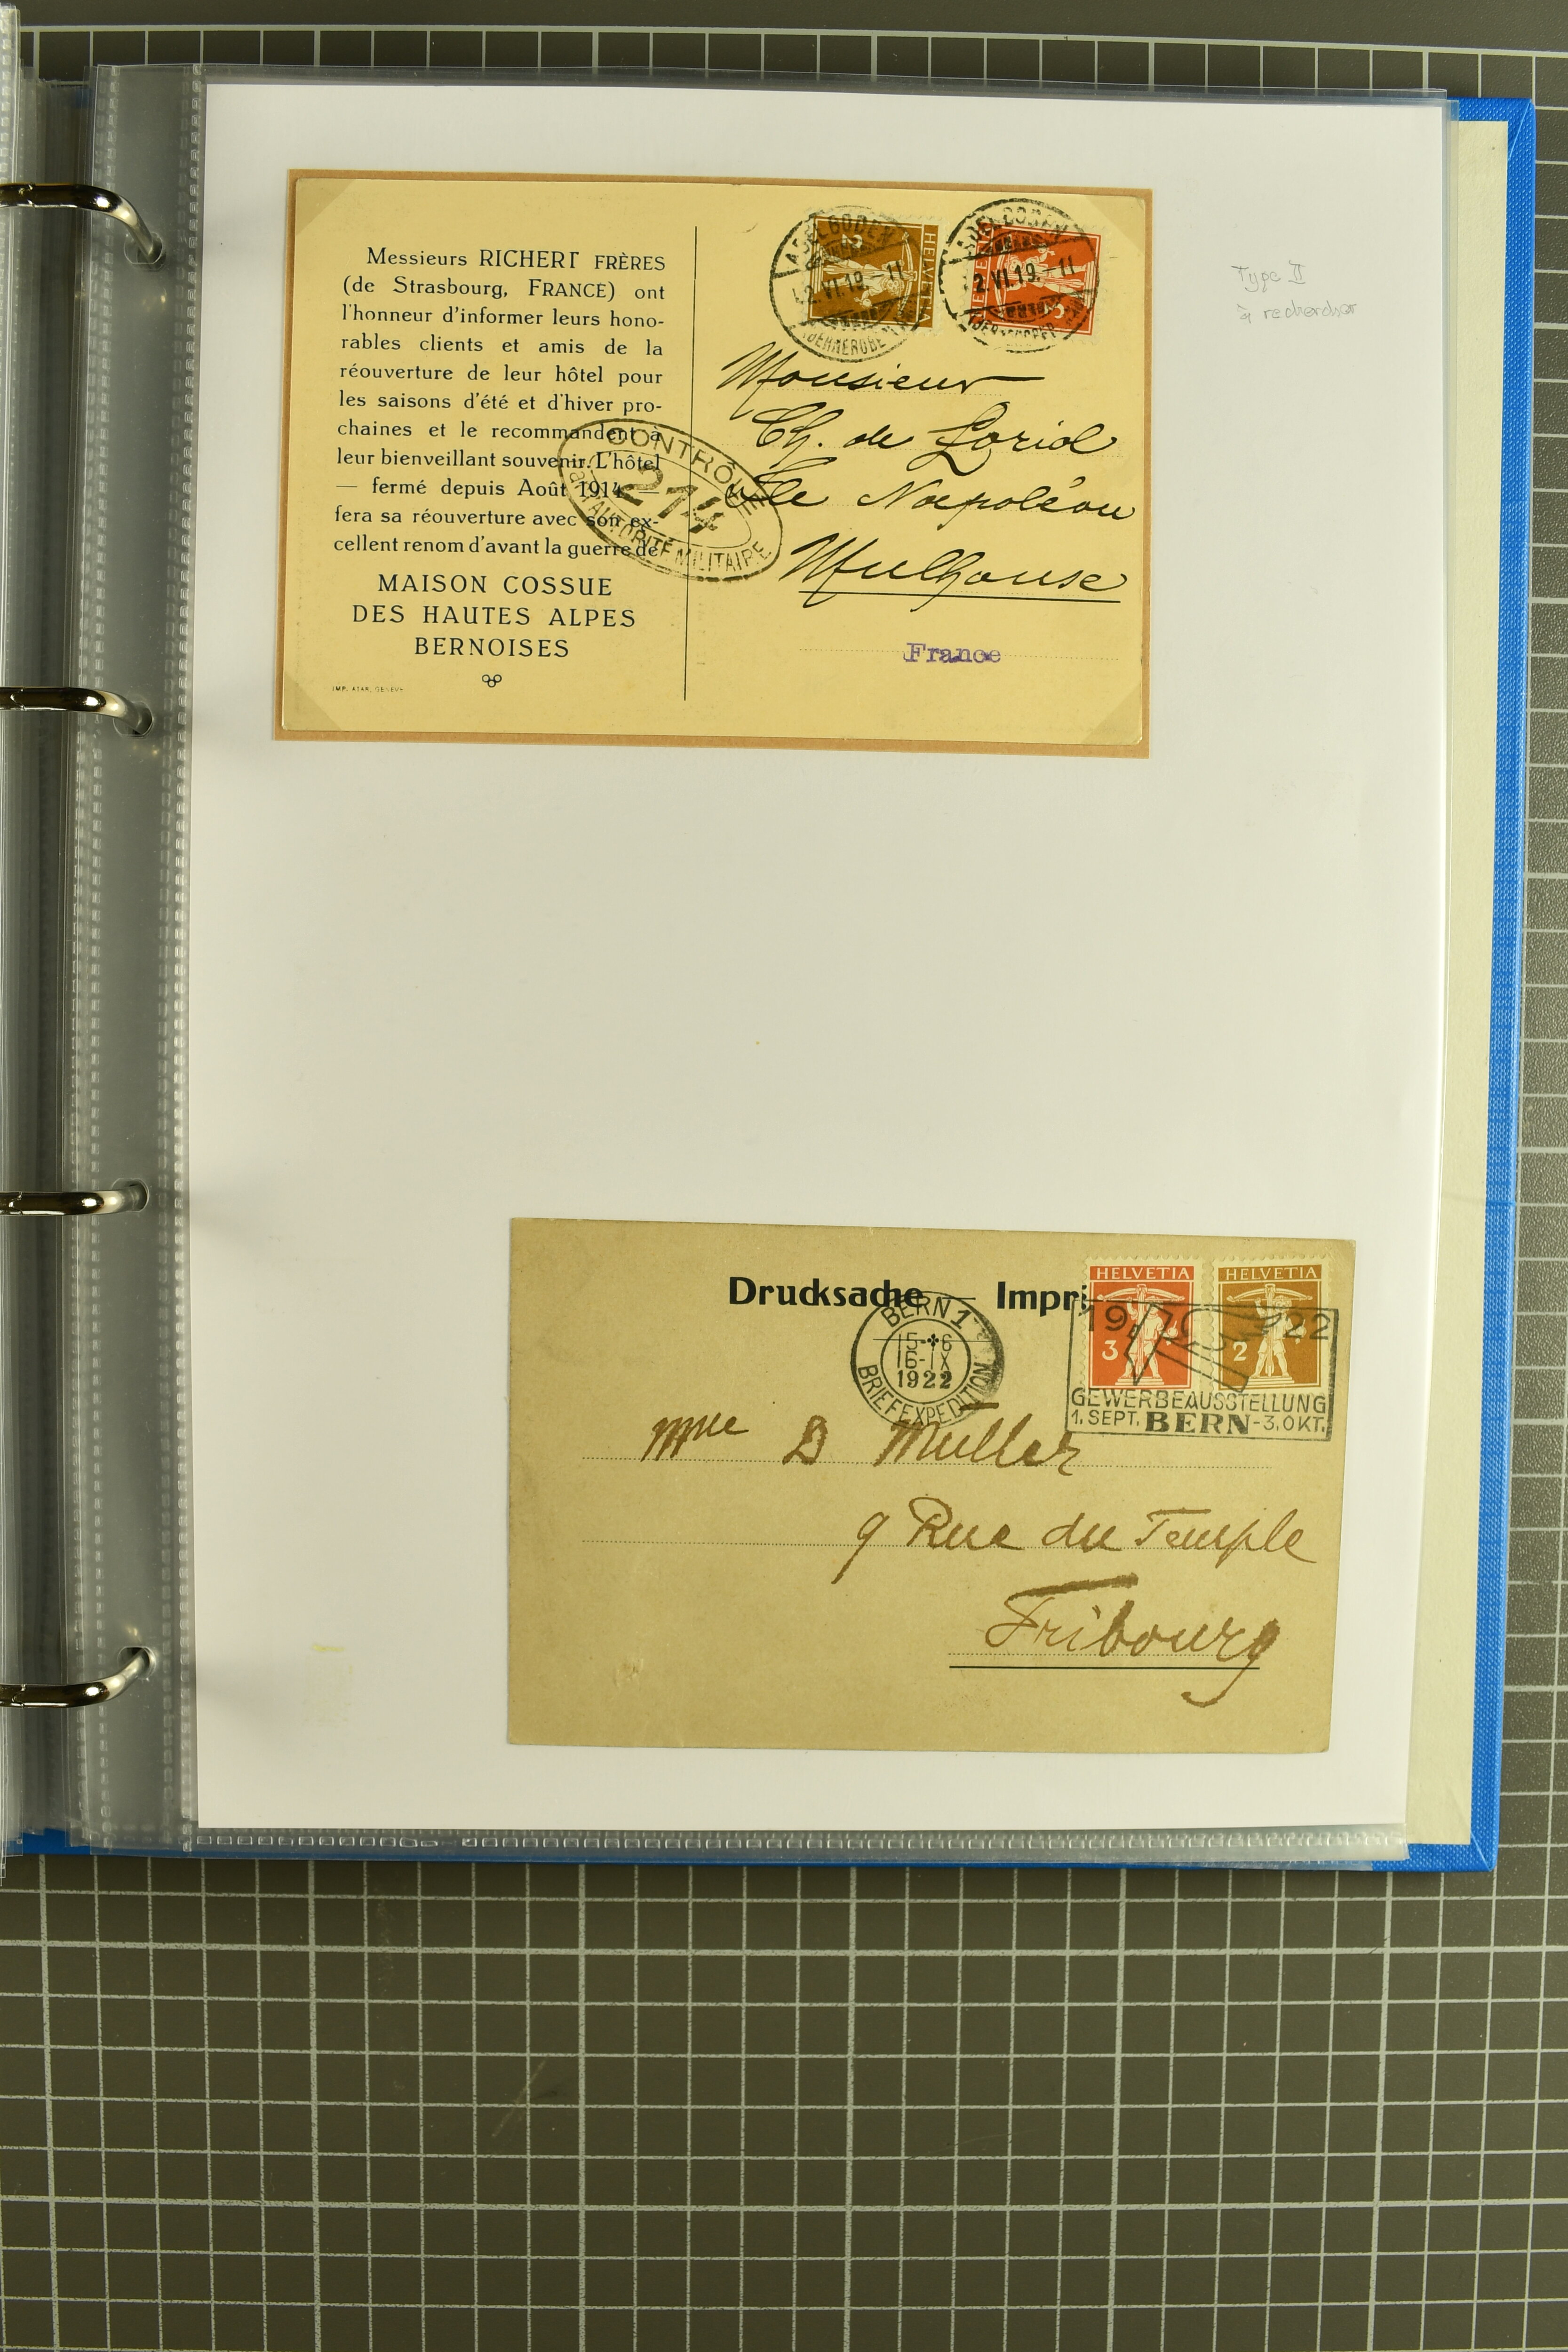 Messieurs RICHERT FRÈRES
(de Strasbourg, FRANCE) ont
l'honneur d'informer leurs hono-
rables clients et amis de la
réouverture de leur hôtel pour
les saisons d'été et d'hiver pro-
chaines et le recommandent à
leur bienveillant souvenir. L'hôtel
— fermé depuis Août 1914 —
fera sa réouverture avec son ex-
cellent renom d'avant la guerre de
MAISON COSSUE
DES HAUTES ALPES
BERNOISES
IMP. ATAR, GENÈVE
CONTRÔLE
214
MILITAIRE
ADELBODEN
2.VI.19.-11
HELVETIA
2
ADELBODEN
2.VI.19.-11
Monsieur
Ch. de Loriol
Napoléon
Mulhouse
France
Type II
à rechercher
Drucksache — Impri
BERN 1
15-16
16-IX
1922
BRIEFEXPEDITION
HELVETIA
3
HELVETIA
2
19 22
GEWERBEAUSSTELLUNG
1. SEPT. BERN - 3. OKT.
D Muller
9 Rue du Temple
Fribourg